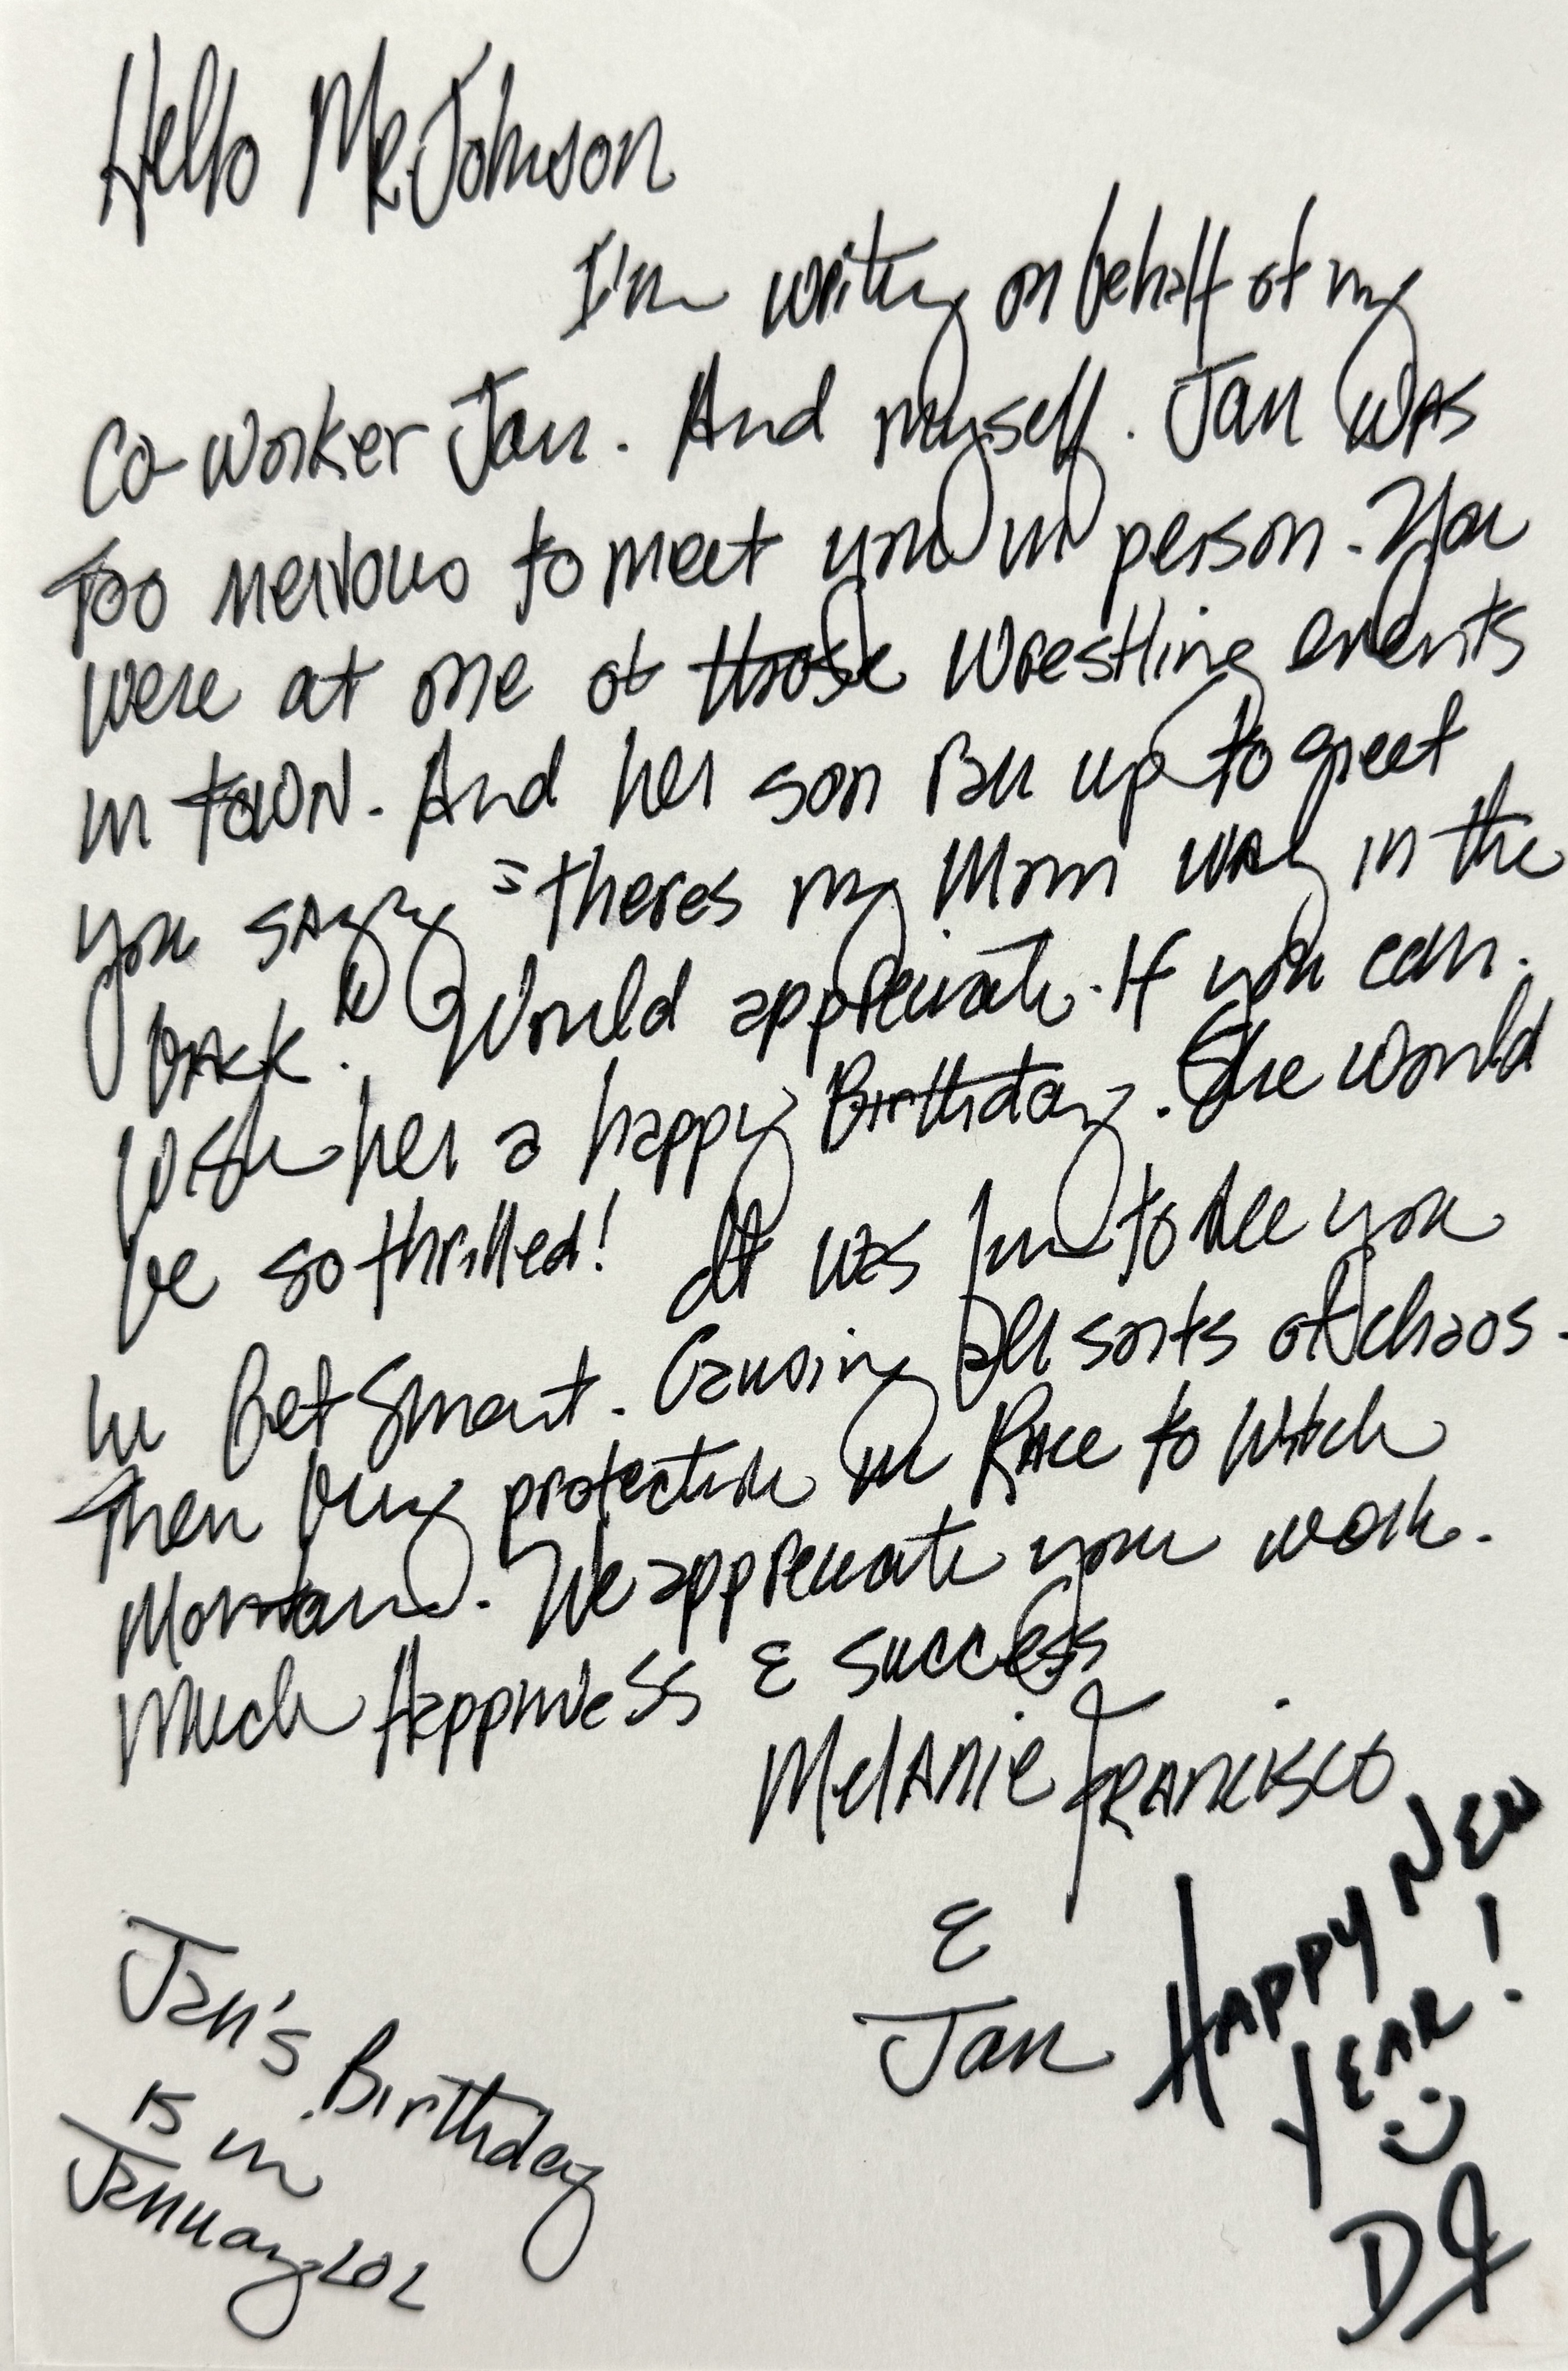 Hello Mr. Johnson
I'm writing on behalf of my
co-worker Jan. And myself. Jan was
too nervous to meet you in person. You
were at one of those wrestling events
in town. And her son ran up to greet
you saying "theres my Mom way in the
back." Would appreciate. If you can.
Wish her a happy Birthday. She would
be so thrilled! It was fun to see you
in Get Smart. Causing all sorts of chaos.
Then being protection in Race to Witch
Montain. We appreciate your work.
Much Happiness & success
Melanie Francisco
&
Jan
Happy New
Year!
DJ
Jan's Birthday
is in
January